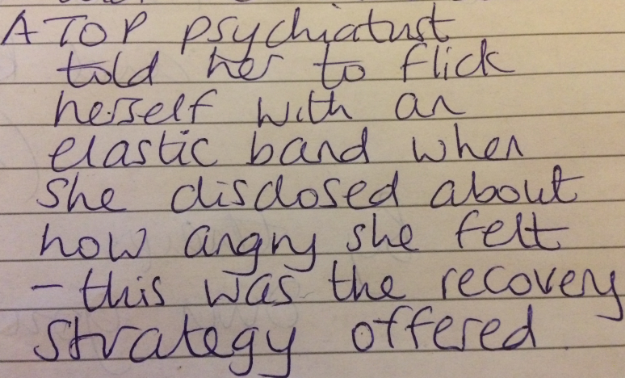 A TOP psychiatrist
told her to flick
herself with an
elastic band when
she disclosed about
how angry she felt
- this was the recovery
strategy offered.